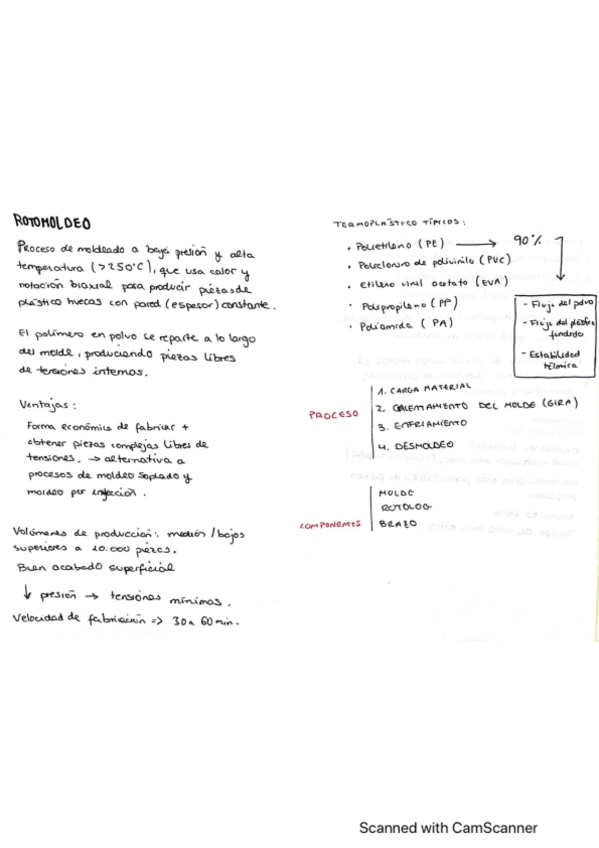 ROTOMOLDEO
Proceso de moldeado a baja presión y alta
temperatura (>250°C), que usa calor y
rotación biaxial para producir piezas de
plástico huecas con pared (espesor) constante.
El polímero en polvo se reparte a lo largo
del molde, produciendo piezas libres
de tensiones internas.
Ventajas:
Forma económica de fabricar +
obtener piezas complejas libres de
tensiones. → alternativa a
procesos de moldeo soplado y
moldeo por inyección.
Volúmenes de producción: medios/bajos
superiores a 10.000 piezas.
Buen acabado superficial
↓ presión → tensiones mínimas.
Velocidad de fabricación => 30 a 60 min.
TERMOPLÁSTICO TÍPICOS:
• Polietileno (PE) → 90%
• Policloruro de polivinilo (PVC)
• Etileno vinil acetato (EVA)
• Polipropileno (PP)
• Poliamida (PA)
- Flujo del polvo
- Flujo del plástico
fundido
- Estabilidad
térmica
PROCESO
1. CARGA MATERIAL
2. CALENTAMIENTO DEL MOLDE (GIRA)
3. ENFRIAMIENTO
4. DESMOLDEO
COMPONENTES
MOLDE
ROTOLOG
BRAZO
Scanned with CamScanner